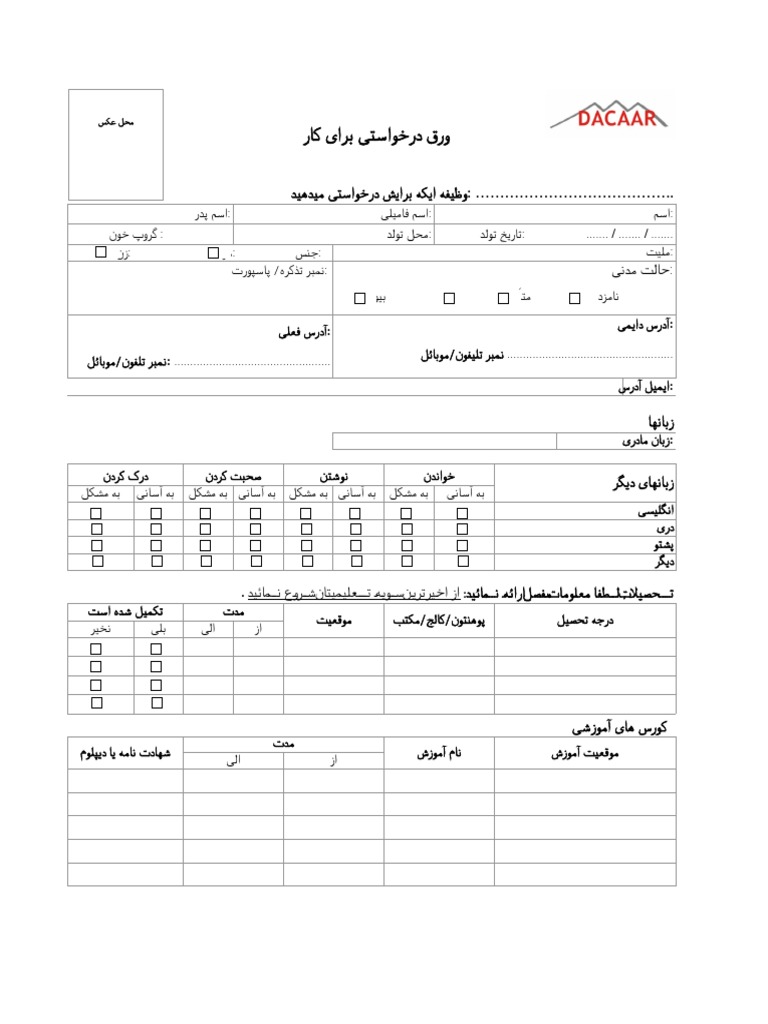 محل عکس
DACAAR
ورق درخواستی برای کار
وظیفه ایکه برایش درخواستی میدهید: ........................................
اسم: اسم فامیلی: اسم پدر:
تاریخ تولد: ....... / ....... / ....... محل تولد: گروپ خون :
ملیت: جنس: زن:
حالت مدنی: نمبر تذکره/ پاسپورت:
نامزد
آدرس دایمی: آدرس فعلی:
نمبر تلیفون/موبائل ..................................................... نمبر تلفون/موبائل: .................................................
ایمیل آدرس:
زبانها
زبان مادری:
زبانهای دیگر خواندن نوشتن صحبت کردن درک کردن
به آسانی به مشکل به آسانی به مشکل به آسانی به مشکل به آسانی به مشکل
انگلیسی
دری
پشتو
دیگر
تحصیلات: لطفا معلومات مفصل ارائه نمائید: از اخیرترین سویه تعلیمیتان شروع نمائید .
درجه تحصیل پوهنتون/کالج/مکتب موقعیت مدت تکمیل شده است
از الی بلی نخیر
کورس های آموزشی
موقعیت آموزش نام آموزش مدت شهادت نامه یا دیپلوم
از الی